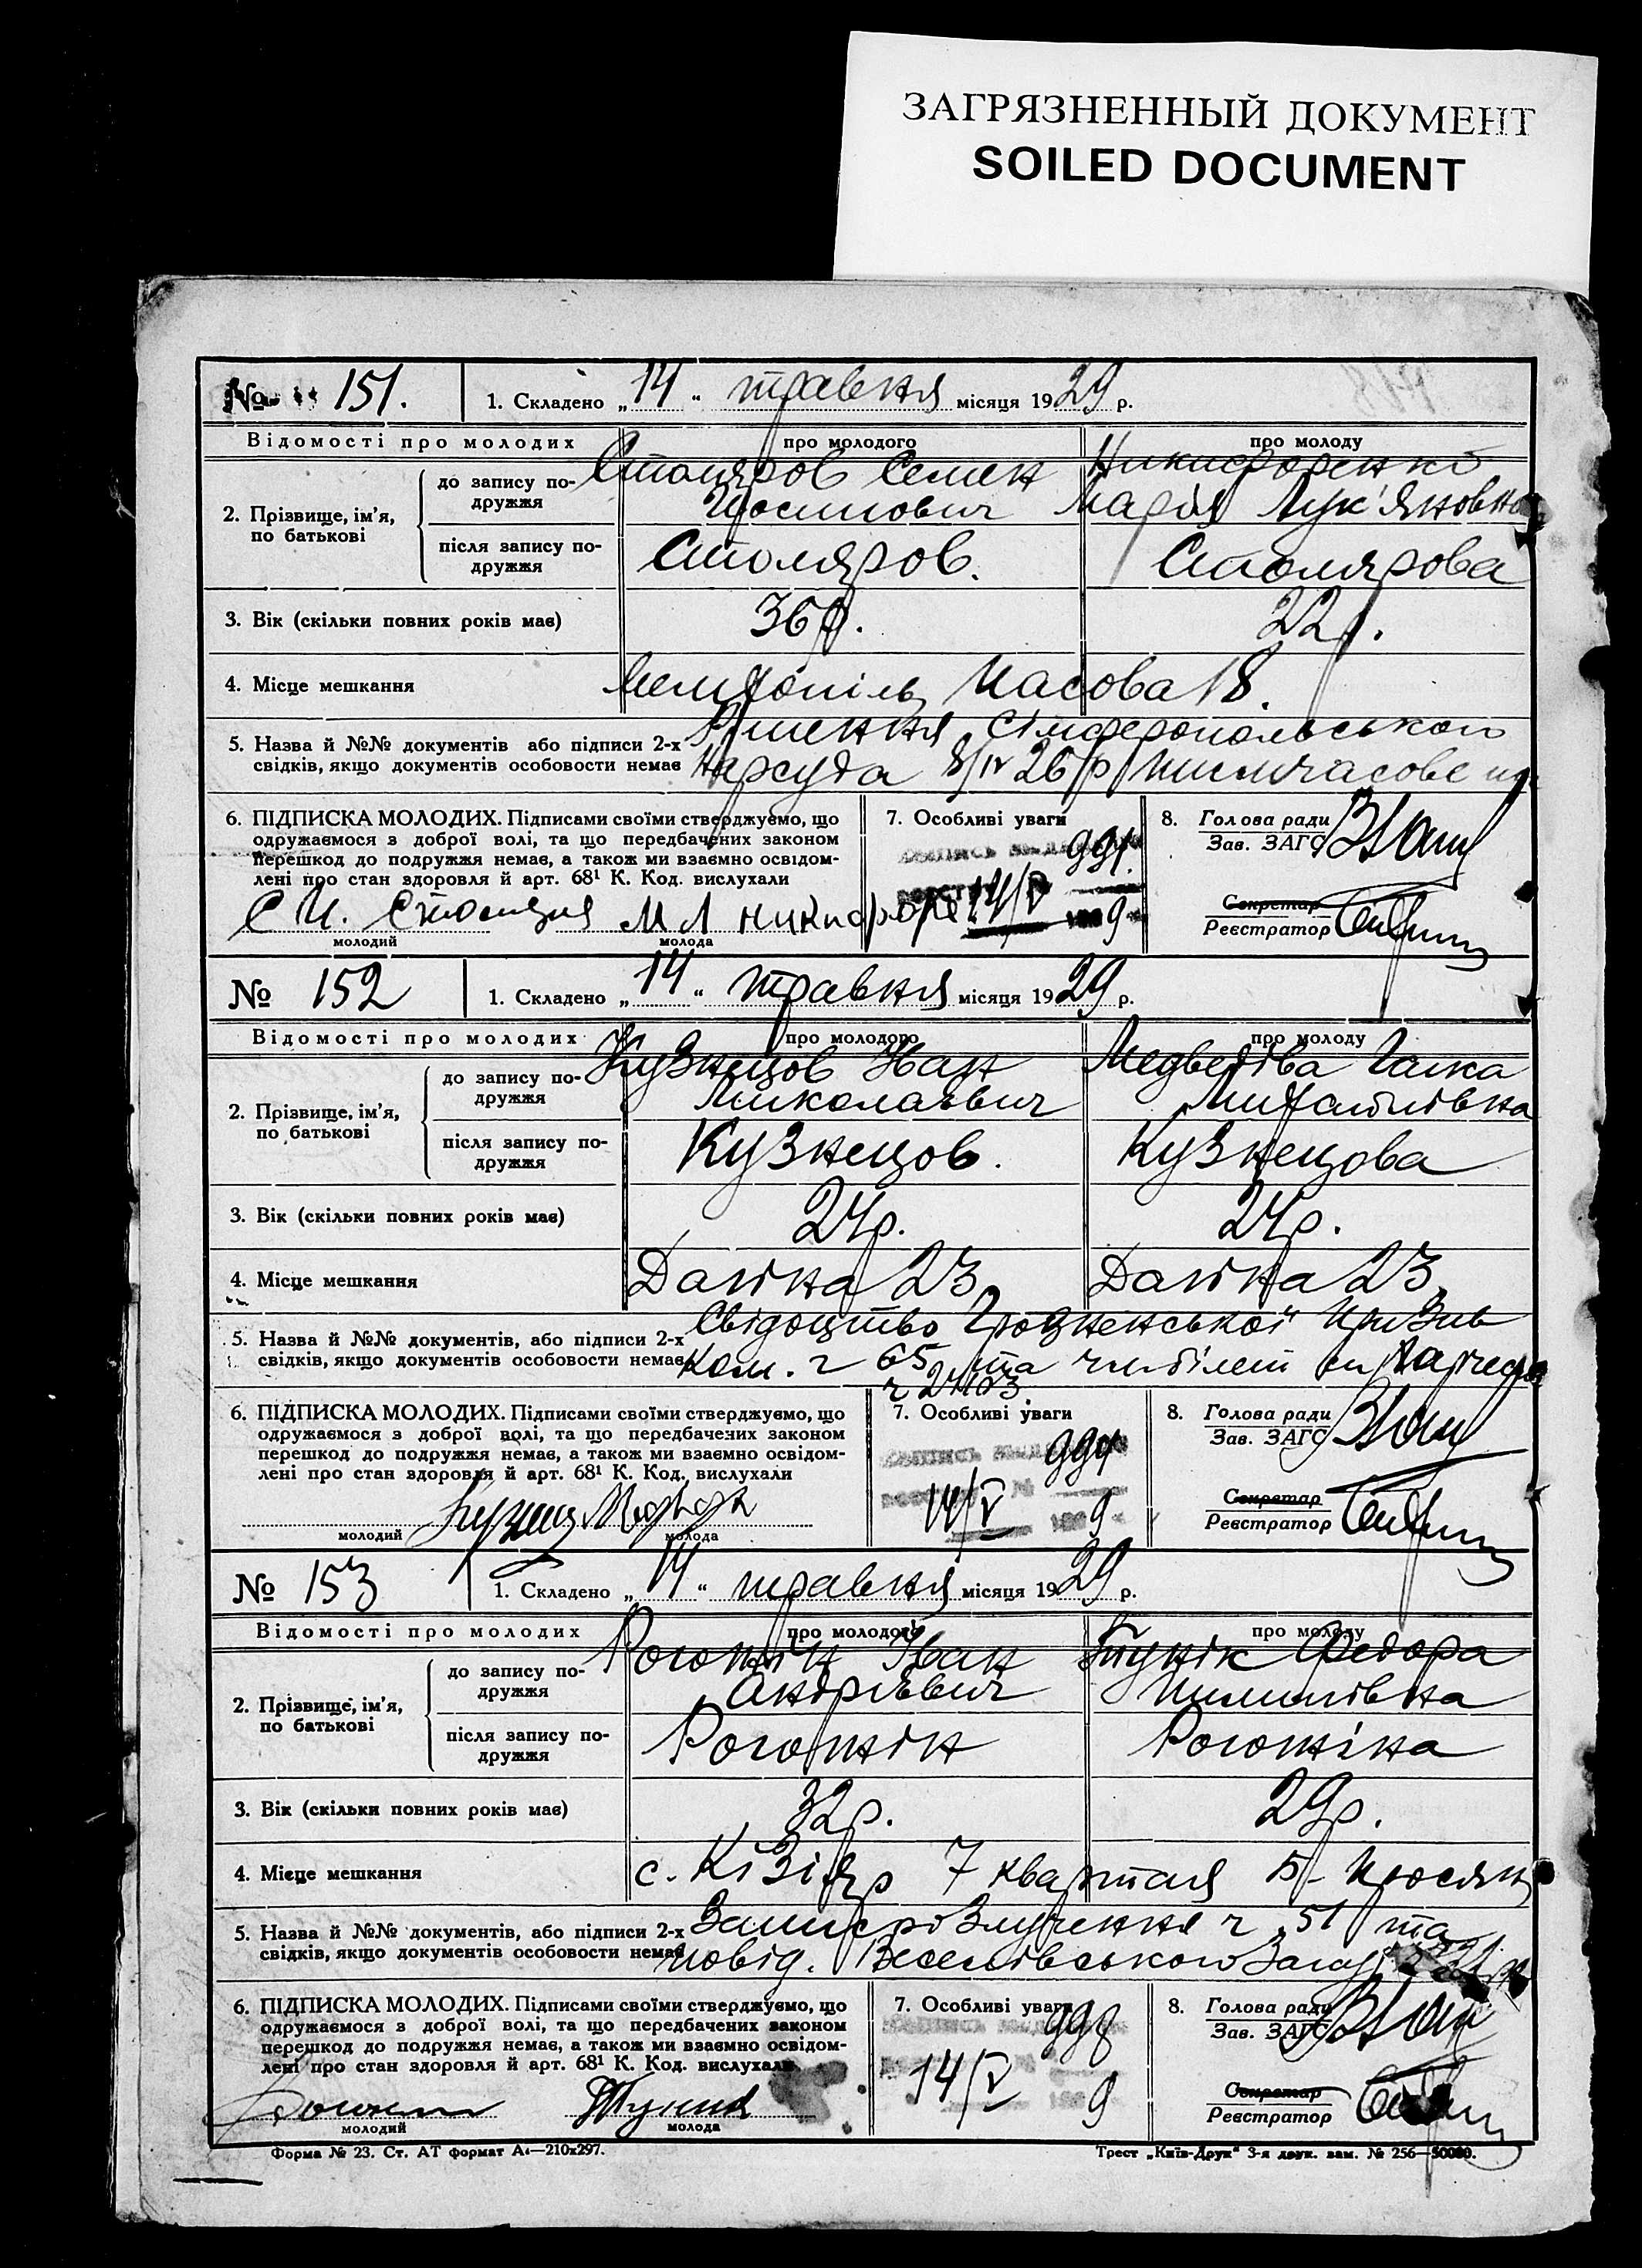 ЗАГРЯЗНЕННЫЙ ДОКУМЕНТ
SOILED DOCUMENT
№ 151. 1. Складено „14“ травня місяця 1929 р.
Відомості про молодих про молодого про молоду
2. Прізвище, ім'я, по батькові
до запису подружжя Столяров Семен Никифоренко
Марія Лук'яновна
після запису подружжя Столяров. Столярова
3. Вік (скільки повних років має) 36р. 22р.
4. Місце мешкання Мелітопіль 18.
5. Назва й №№ документів або підписи 2-х Рішення Сімферопольського
свідків, якщо документів особовости немає Нарсуда 8/IV 26р
6. ПІДПИСКА МОЛОДИХ. Підписами своїми стверджуємо, що
одружаємося з доброї волі, та що передбачених законом
перешкод до подружжя немає, а також ми взаємно освідом-
лені про стан здоровля й арт. 68¹ К. Код. вислухали
молодий молода
7. Особливі уваги
991.
14/V
9
8. Голова ради
Зав. ЗАГС
Секретар
Реєстратор
№ 152 1. Складено „14“ травня місяця 1929 р.
Відомості про молодих про молодого про молоду
2. Прізвище, ім'я, по батькові
до запису подружжя Кузнецов Іван Медведіва Галка
Миколаєвич Михайлівна
після запису подружжя Кузнецов. Кузнецова
3. Вік (скільки повних років має) 24р. 24р.
4. Місце мешкання 23 23
5. Назва й №№ документів, або підписи 2-х Свідоцтво Грозненської Призив
свідків, якщо документів особовости немає ком. ч 65 та білет
ч 24103.
6. ПІДПИСКА МОЛОДИХ. Підписами своїми стверджуємо, що
одружаємося з доброї волі, та що передбачених законом
перешкод до подружжя немає, а також ми взаємно освідом-
лені про стан здоровля й арт. 68¹ К. Код. вислухали
молодий молода
7. Особливі уваги
994
14/V
9
8. Голова ради
Зав. ЗАГС
Секретар
Реєстратор
№ 153 1. Складено „14“ травня місяця 1929 р.
Відомості про молодих про молодого про молоду
2. Прізвище, ім'я, по батькові
до запису подружжя Рогожін Іван Тупік Федора
Андрієвич Пилипівна
після запису подружжя Рогожін Рогожіна
3. Вік (скільки повних років має) 32р. 29р.
4. Місце мешкання с. Кізіяр 7 квартал
5. Назва й №№ документів, або підписи 2-х Запис розлучення ч 51 та
свідків, якщо документів особовости немає повід. Веселівського Загсу
6. ПІДПИСКА МОЛОДИХ. Підписами своїми стверджуємо, що
одружаємося з доброї волі, та що передбачених законом
перешкод до подружжя немає, а також ми взаємно освідом-
лені про стан здоровля й арт. 68¹ К. Код. вислухали
молодий молода
7. Особливі уваги
998
14/V
9
8. Голова ради
Зав. ЗАГС
Секретар
Реєстратор
Форма № 23. Ст. АТ формат А₄—210x297. Трест „Київ-Друк“ 3-я друк. зам. № 256—50000.